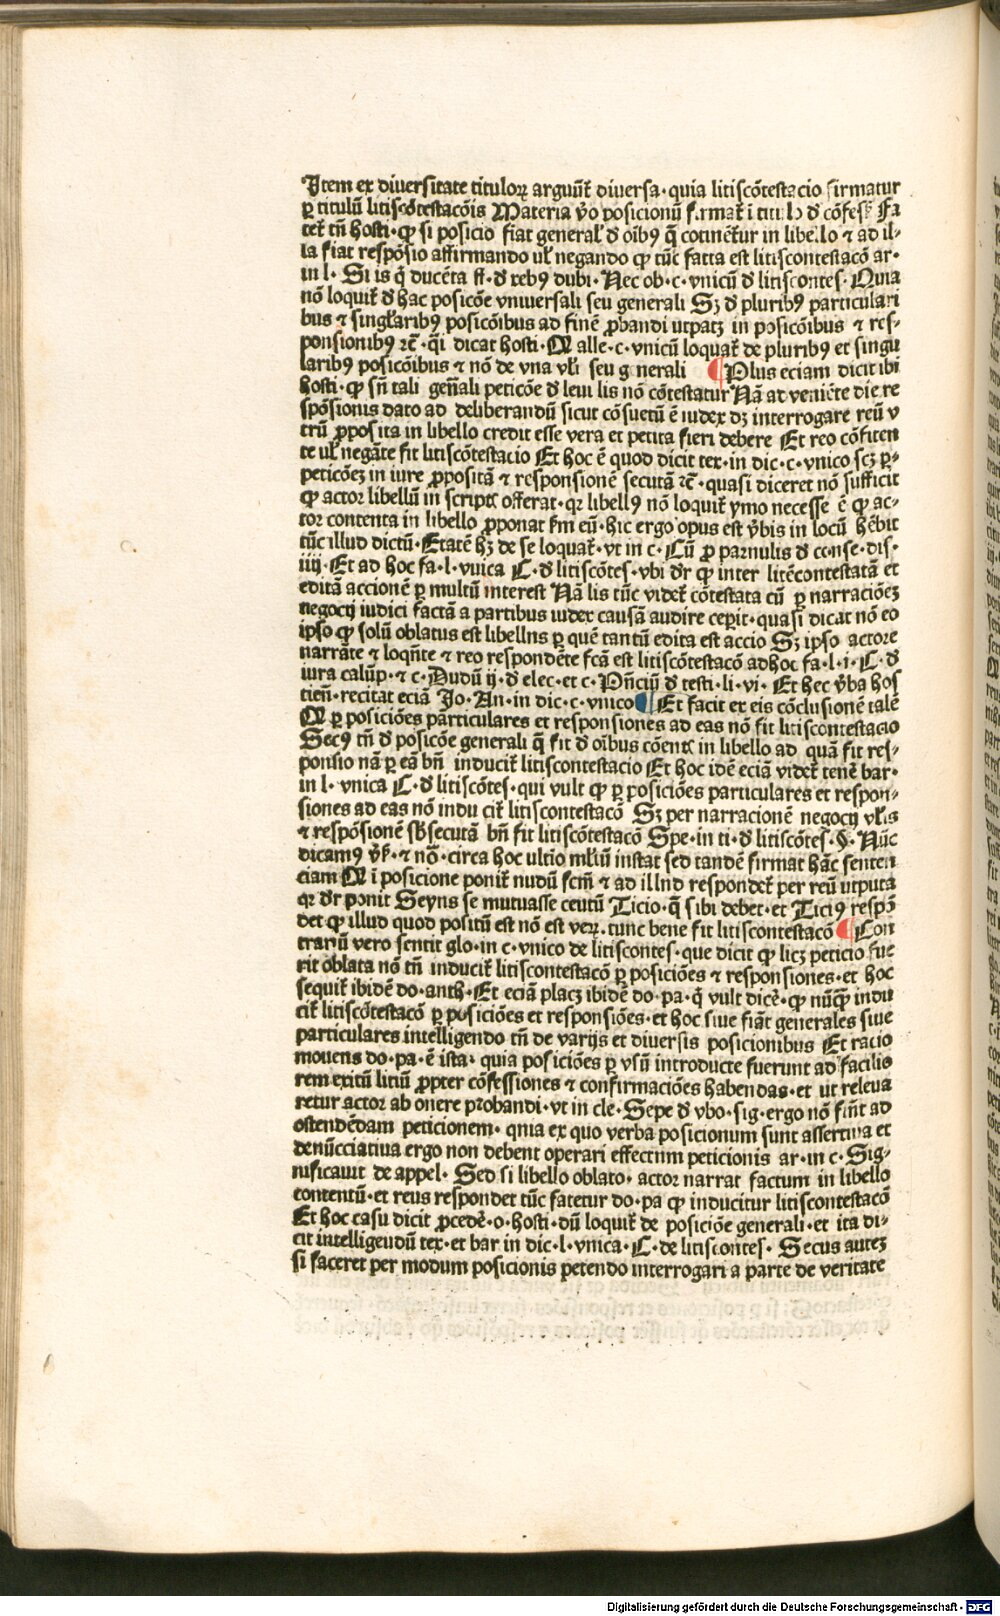 Item ex diuersitate titulorꝝ arguūt᷑ diuersa· quia litiscōtestacio firmatur
ꝑ titulū litiscōtestacōis Materia ꝟo posicionū firmat᷑ ī titulo ď cōfess̄ Fa
tet᷑ tn̄ hosti· ꝙ si posicio fiat general̓ ď oībꝰ q̄ cōtinēt᷑ur in libello ⁊ ad il⸗
la fiat respōsio affirmando ul̓ negando ꝙ tūc facta est litiscontestacō ar·
in l· Si is q̇ ducēta ff· ď rebꝰ dubi· Nec ob· c· vnicū ď litiscontes· Quia
nō loquit᷑ ď hac posicōe vniuersali seu generali Sꝫ ď pluribꝰ particulari
bus ⁊ singl̓aribꝰ posicōibus ad finē ꝓbandi utpatꝫ in posicōibus ⁊ res⸗
ponsionibꝰ ⁊c̄· q̇i dicat hosti· Q alle· c· vnicū loquat᷑ de pluribꝰ et singu
laribꝰ posicōibus ⁊ nō de vna vl̓i seu generali ¶ Plus eciam dicit ibi
hosti· ꝙ sn̄ tali gen̄ali peticōe ď leui lis nō cōtestatur Nā ad veniēte die re
spōsionis dato ad deliberandū sicut cōsuetū ē iudex dꝫ interrogare reū v
trū ꝓposita in libello credit esse vera et petita fieri debere Et reo cōfiten
te ul̓ negāte fit litiscōtestacio Et hoc ē quod dicit tex· in dic· c· vnico scꝫ ꝑ⸗
peticōeꝫ in iure ꝓpositā ⁊ responsionē secutā ⁊c̄· quasi diceret nō sufficit
ꝙ actor libellū in scriptꝭ offerat· qꝛ libellꝰ nō loquit᷑ ymo necesse ē ꝙ ac⸗
tor contenta in libello ꝓponat s̄m eū· hic ergo opus est ꝟbis in locū hēbit
tūc illud dictū· Etatē hꝫ de se loquat᷑· vt in c· Cū ꝓ paruulis ď conse· dis·
iiij· Et ad hoc fa· l· vnica C· ď litiscōtes· vbi dr̄ ꝙ inter litēcontestatā et
editā accionē ꝑ multū interest Nā lis tūc videt᷑ cōtestata cū ꝑ narraciōeꝫ
negocij iudici factā a partibus iudex causā audire cepit· quasi dicat nō eo
ipso ꝙ solū oblatus est libellus ꝑ quē tantū edita est accio Sꝫ ipso actore
narrāte ⁊ loqn̄te ⁊ reo respondēte fcā est litiscōtestacō adhoc fa· l· i· C· ď
iura calūp· ⁊ c· Dudū ij· ď elec· et c· Pn̄ciū ď testi· li· vi· Et hec ꝟba hos
tien̄· recitat eciā Jo· An· in dic· c· vnico ¶ Et facit ex eis cōclusionē talē
Q ꝑ posiciōes particulares et responsiones ad eas nō fit litiscontestacio
Secꝰ tn̄ ď posicōe generali q̄ fit ď oībus cōentꝭ in libello ad quā fit res⸗
ponsio nā ꝑ eā bn̄ inducit᷑ litiscontestacio Et hoc idē eciā videt᷑ tenē bar·
in l· vnica C· ď litiscōtes· qui vult ꝙ ꝑ posiciōes particulares et respon⸗
siones ad eas nō inducit᷑ litiscontestacō Sꝫ per narracionē negocij vl̓is
⁊ respōsionē sb̄secutā bn̄ fit litiscōtestacō Spe· in ti· ď litiscōtes· §· Nūc
dicamꝰ ꝟs̄· ⁊ nō· circa hoc ultīo ml̓tū instat sed tandē firmat hāc senten
ciam Q ī posicione ponit᷑ nudū fcm̄ ⁊ ad illud respondet᷑ per reū utputa
qꝛ dr̄ ponit Seyus se mutuasse centū Ticio· q̄ sibi debet· et Ticiꝰ respō
det ꝙ illud quod positū est nō est veꝝ· tunc bene fit litiscontestacō ¶ Con
trariū vero sentit glo· in c· vnico de litiscontes· que dicit ꝙ licꝫ peticio fue
rit oblata nō tn̄ inducit᷑ litiscontestacō ꝑ posiciōes ⁊ responsiones· et hoc
sequit᷑ ibidē do· anth· Et eciā placꝫ ibidē do· pa· q̇ vult dicē· ꝙ nūꝙ̄ indu
cit᷑ litiscōtestacō ꝑ posiciōes et responsiōes· et hoc siue fiāt generales siue
particulares intelligendo tn̄ de varijs et diuersis posicionibus Et racio
mouens do· pa· ē ista· quia posiciōes ꝑ vsū introducte fuerunt ad facilio
rem exitū litiū ꝓpter cōfessiones ⁊ confirmaciōes habendas· et ut releua
retur actor ab onere probandi· vt in cle· Sepe ď vbo· sig· ergo nō fiūt ad
ostendēdam peticionem· quia ex quo verba posicionum sunt assertiua et
denūcciatiua ergo non debent operari effectum peticionis ar· in c· Sig⸗
nificauit de appel· Sed si libello oblato· actor narrat factum in libello
contentū· et reus respondet tūc fatetur do· pa ꝙ inducitur litiscontestacō
Et hoc casu dicit ꝓcedē· o· hosti· dū loquit᷑ de posiciōe generali· et ita di⸗
cit intelligendū tex· et bar in dic· l· vnica· C· de litiscontes· Secus auteꝫ
si faceret per modum posicionis petendo interrogari a parte de veritate
Digitalisierung gefördert durch die Deutsche Forschungsgemeinschaft - DFG